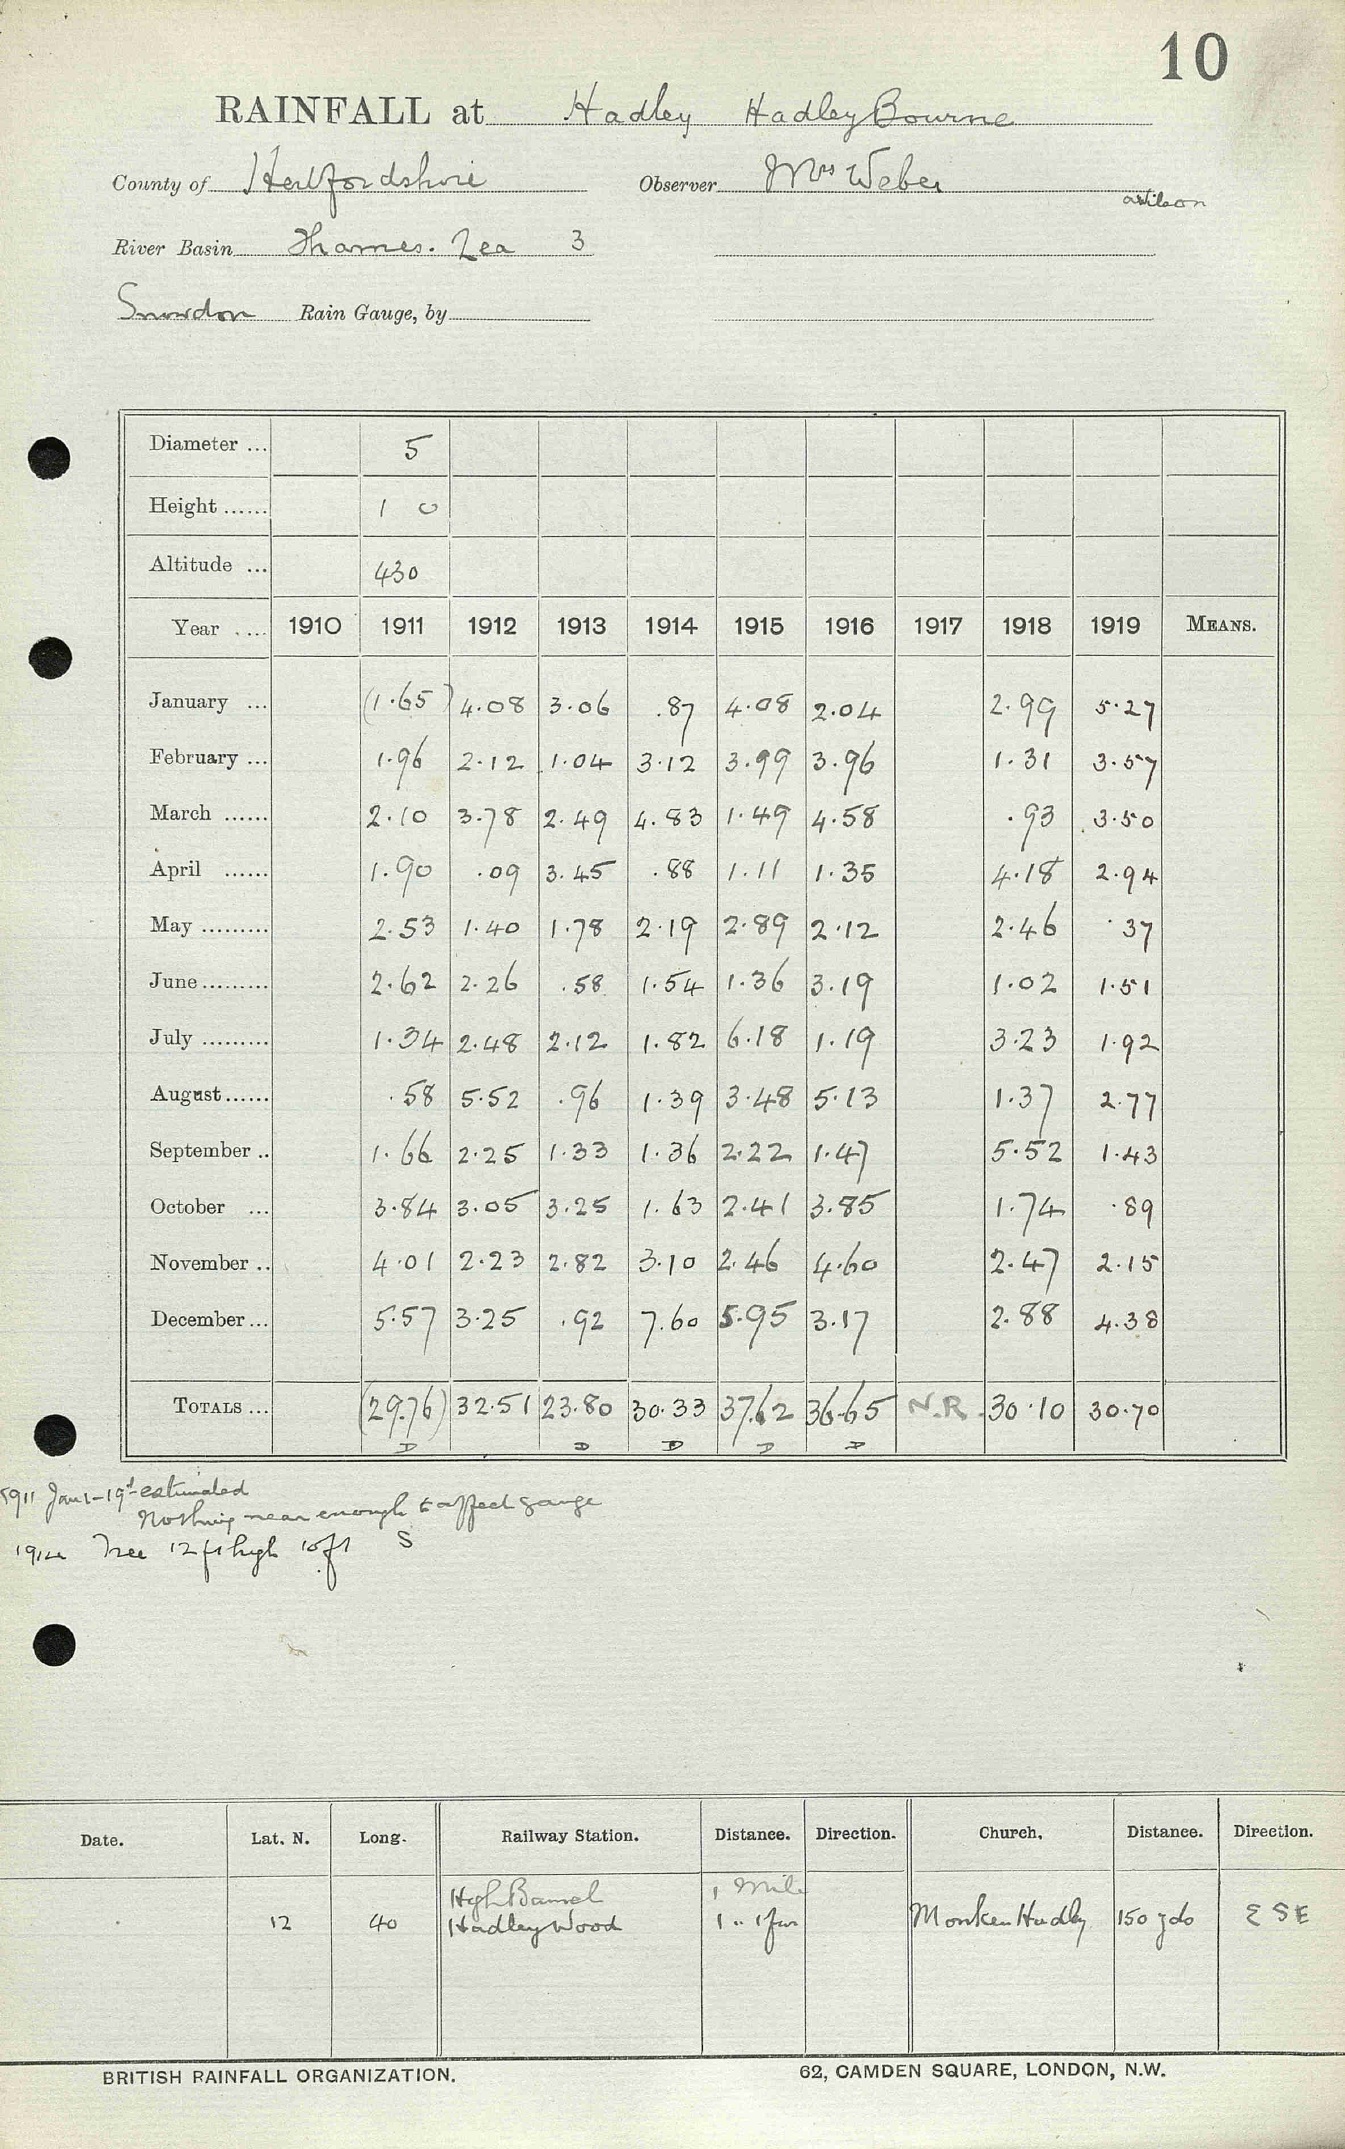 10
RAINFALL at Hadley Hadley Bourne
County of Hertfordshire Observer Mrs Weber
River Basin Thames. Lea 3
Snowdon Rain Gauge, by
Diameter ... 5
Height ...... 1 0
Altitude ... 430
Year .... 1910 1911 1912 1913 1914 1915 1916 1917 1918 1919 MEANS.
January ... (1.65) 4.08 3.06 .87 4.08 2.04 2.99 5.27
February ... 1.96 2.12 1.04 3.12 3.99 3.96 1.31 3.57
March ...... 2.10 3.78 2.49 4.83 1.49 4.58 .93 3.50
April ...... 1.90 .09 3.45 .88 1.11 1.35 4.18 2.94
May ......... 2.53 1.40 1.78 2.19 2.89 2.12 2.46 .37
June ......... 2.62 2.26 .58 1.54 1.36 3.19 1.02 1.51
July ......... 1.34 2.48 2.12 1.82 6.18 1.19 3.23 1.92
August ...... .58 5.52 .96 1.39 3.48 5.13 1.37 2.77
September .. 1.66 2.25 1.33 1.36 2.22 1.47 5.52 1.43
October ... 3.84 3.05 3.25 1.63 2.41 3.85 1.74 .89
November .. 4.01 2.23 2.82 3.10 2.46 4.60 2.47 2.15
December ... 5.57 3.25 .92 7.60 5.95 3.17 2.88 4.38
TOTALS ... (29.76) 32.51 23.80 30.33 37.62 36.65 N.R. 30.10 30.70
D D D D D
1911 Jan 1-19th estimated
Nothing near enough to affect gauge
1914 Tree 12 ft high 10 ft S
Date. Lat. N. Long. Railway Station. Distance. Direction. Church. Distance. Direction.
High Barnet 1 Mile
12 40 Hadley Wood 1 .. 1 fur Monken Hadley 150 yds ESE
BRITISH RAINFALL ORGANIZATION. 62, CAMDEN SQUARE, LONDON, N.W.